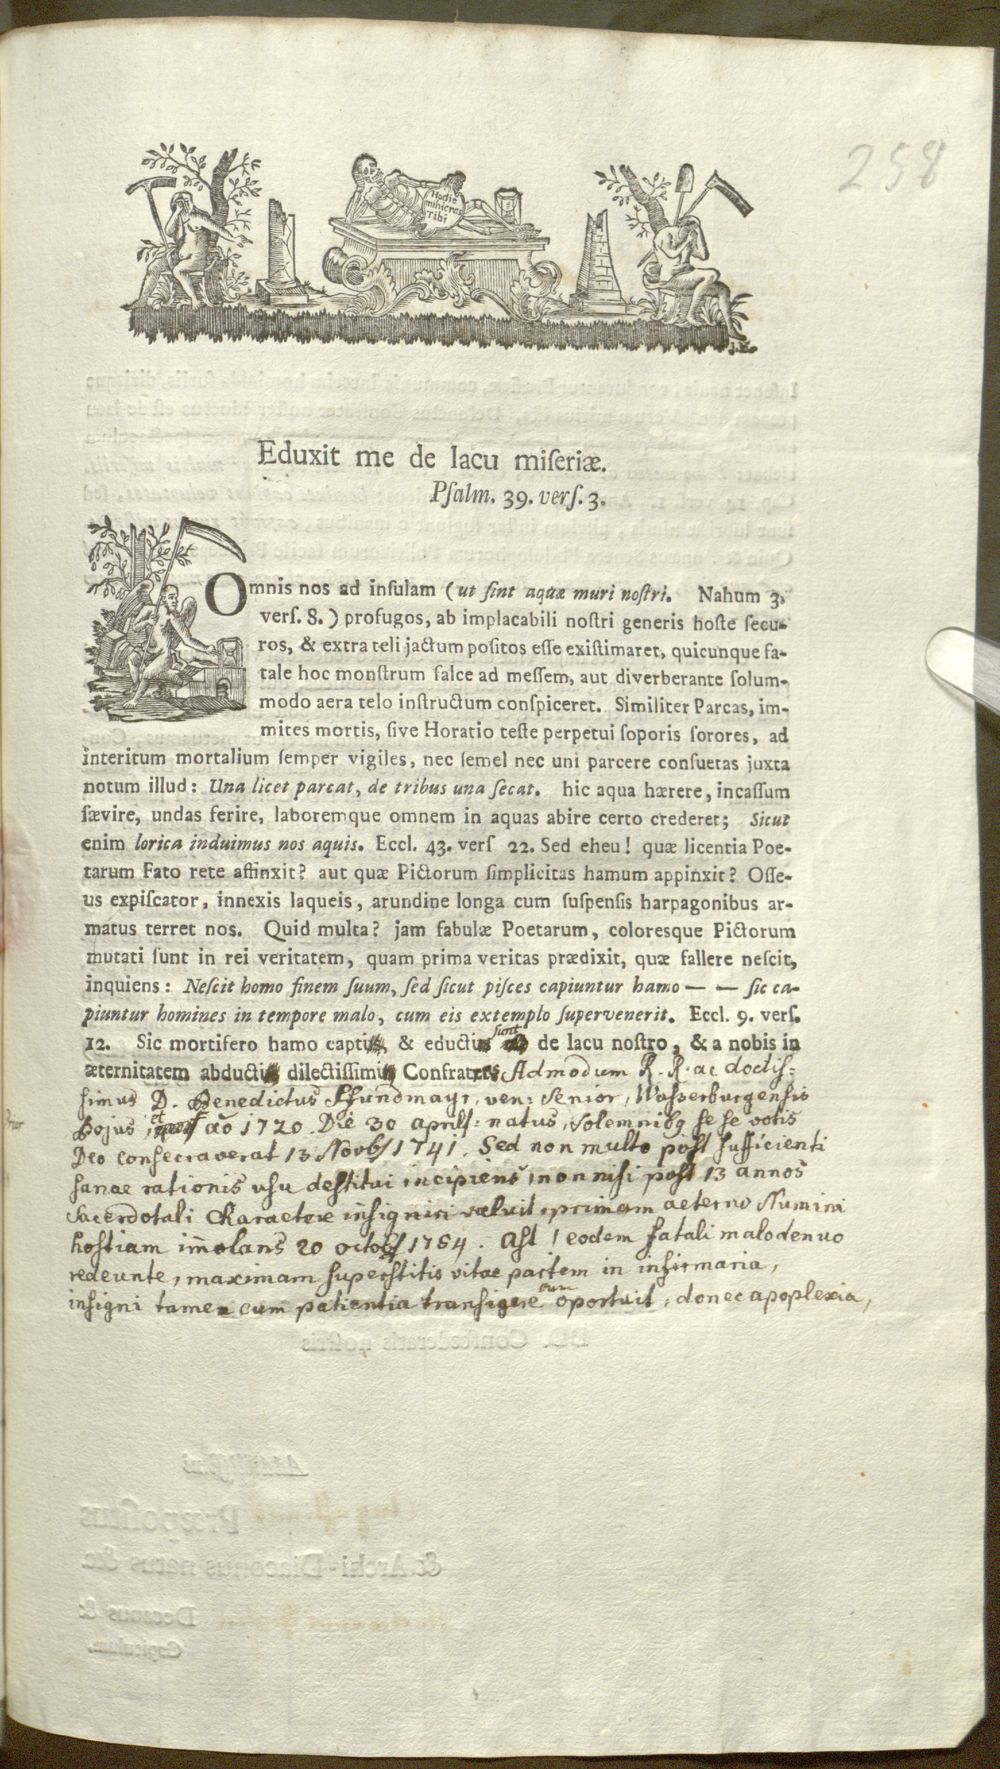 258
Hodie
mihi cras
Tibi
Eduxit me de lacu miseriæ.
Psalm. 39. vers. 3.
Omnis nos ad insulam (ut sint aquæ muri nostri. Nahum 3.
vers. 8.) profugos, ab implacabili nostri generis hoste secu-
ros, & extra teli jactum positos esse existimaret, quicunque fa-
tale hoc monstrum falce ad messem, aut diverberante solum-
modo aera telo instructum conspiceret. Similiter Parcas, im-
mites mortis, sive Horatio teste perpetui soporis sorores, ad
interitum mortalium semper vigiles, nec semel nec uni parcere consuetas juxta
notum illud: Una licet parcat, de tribus una secat. hic aqua hærere, incassum
sævire, undas ferire, laboremque omnem in aquas abire certo crederet; Sicut
enim lorica induimus nos aquis. Eccl. 43. vers 22. Sed eheu! quæ licentia Poe-
tarum Fato rete affinxit? aut quæ Pictorum simplicitas hamum appinxit? Osse-
us expiscator, innexis laqueis, arundine longa cum suspensis harpagonibus ar-
matus terret nos. Quid multa? jam fabulæ Poetarum, coloresque Pictorum
mutati sunt in rei veritatem, quam prima veritas prædixit, quæ fallere nescit,
inquiens: Nescit homo finem suum, sed sicut pisces capiuntur hamo — — sic ca-
piuntur homines in tempore malo, cum eis extemplo supervenerit. Eccl. 9. vers.
12. Sic mortifero hamo capti, & educti sunt de lacu nostro, & a nobis in
æternitatem abducti dilectissimi Confratres Admodum R. R. ac doctis-
simus D. Benedictus Pfundmayr, ven: Senior, Wasserburgensis
Bojus, et aõ 1720. Die 30 april: natus, solemnibq se se votis
Deo consecraverat 13 Novb 1741. Sed non multo post sufficienti
sanae rationis usu destitui incipiens, nonnisi post 13 annos
Sacerdotali Charactere insigniri valuit, primam aeterno Numini
hostiam im̄olans 20 octob 1754. Ast! eodem fatali malo denuo
redeunte, maximam superstitis vitae partem in infirmaria,
insigni tamen cum patientia transigere eum oportuit, donec apoplexia,